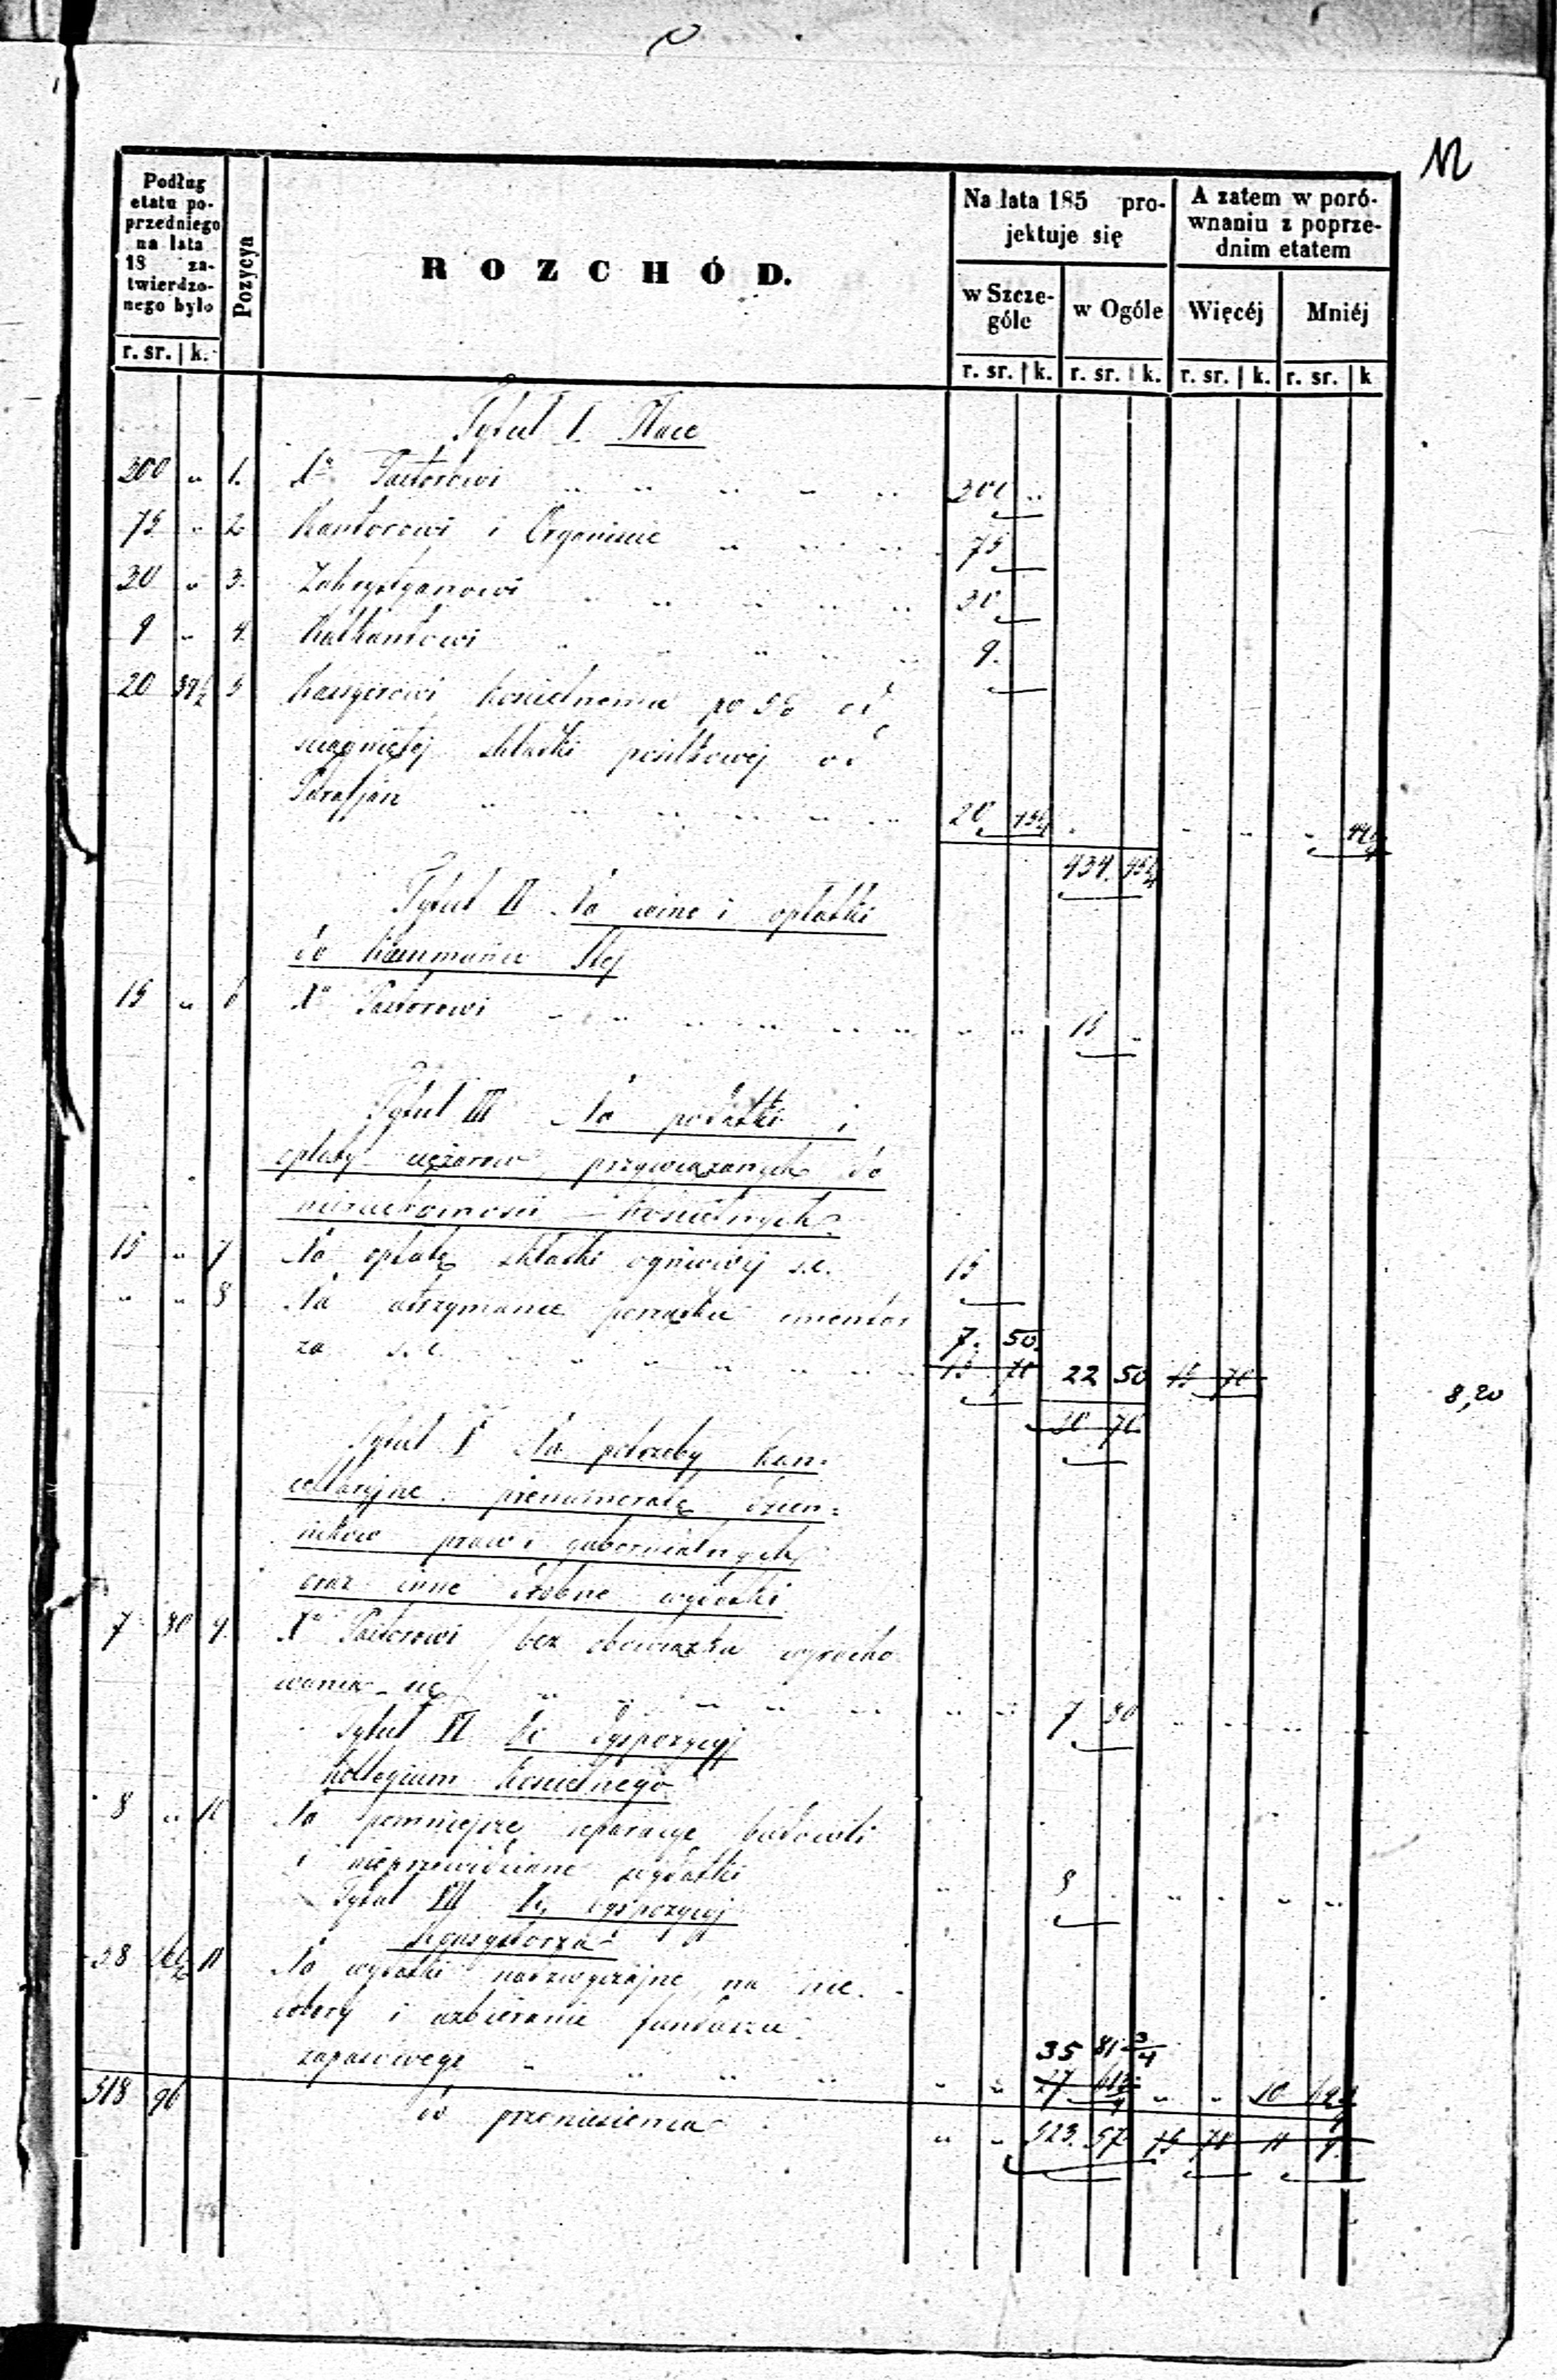 Podług etatu poprzedniego na lata 18 zatwierdzonego było
r. sr. | k.
Pozycya
ROZCHÓD.
Na lata 185 projektuje się
w Szczególe
w Ogóle
A zatem w porównaniu z poprzednim etatem
Więcéj
Mniéj
r. sr. | k. r. sr. | k. r. sr. | k. r. sr. | k
Tytuł I. Płace
300 " 1. Xu Pastorowi 300 "
75 " 2 Kantorowi i Organiście 75
30 " 3. Zakrystyanowi 30
9 " 4. Kalkantowi 9.
20 5 Kassyerowi kościelnemu po 5% od
ściągniętej składki posiłkowej od
Parafjan 20
434.
Tytuł II Na wino i opłatki
do Kommunii Stej
15 " 6 Xu Pastorowi " " 15 "
Tytuł III Na podatki i
opłaty ciężarów przywiązanych do
nieruchomości kościelnych
15 " 7 Na opłatę składki ogniowej s.c. 15
" " 8 Na utrzymanie porządku
za s.c. 7. 50.
15 70 22 50 15 70
8,20
30 70
Tytuł V Na potrzeby kan=
cellaryjne prenumeratę dzien=
ników praw i gubernialnych
oraz inne drobne wydatki
7 30 9. Xu Pastorowi / bez obowiązku wyracho
wania się / " " 7 30
Tytuł VI Do dyspozycyj
Kollegium Kościelnego
8 " 10 Na pomniejsze reparacye budowli
i nieprzewidziane wydatki 8
Tytuł VII Do dyspozycyj
Konsystorza
38 11 Na wydatki nadzwyczajne, na nie
dobory i uzbieranie funduszu
zapasowego 35 81 3/4
27 10
518 96 do przeniesienia 523. 57 15 70 11 9.